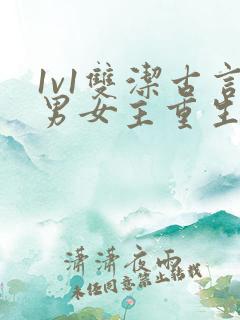 1v1雙潔古言
男女主重生
瀟瀟夜雨
未经同意禁止转载